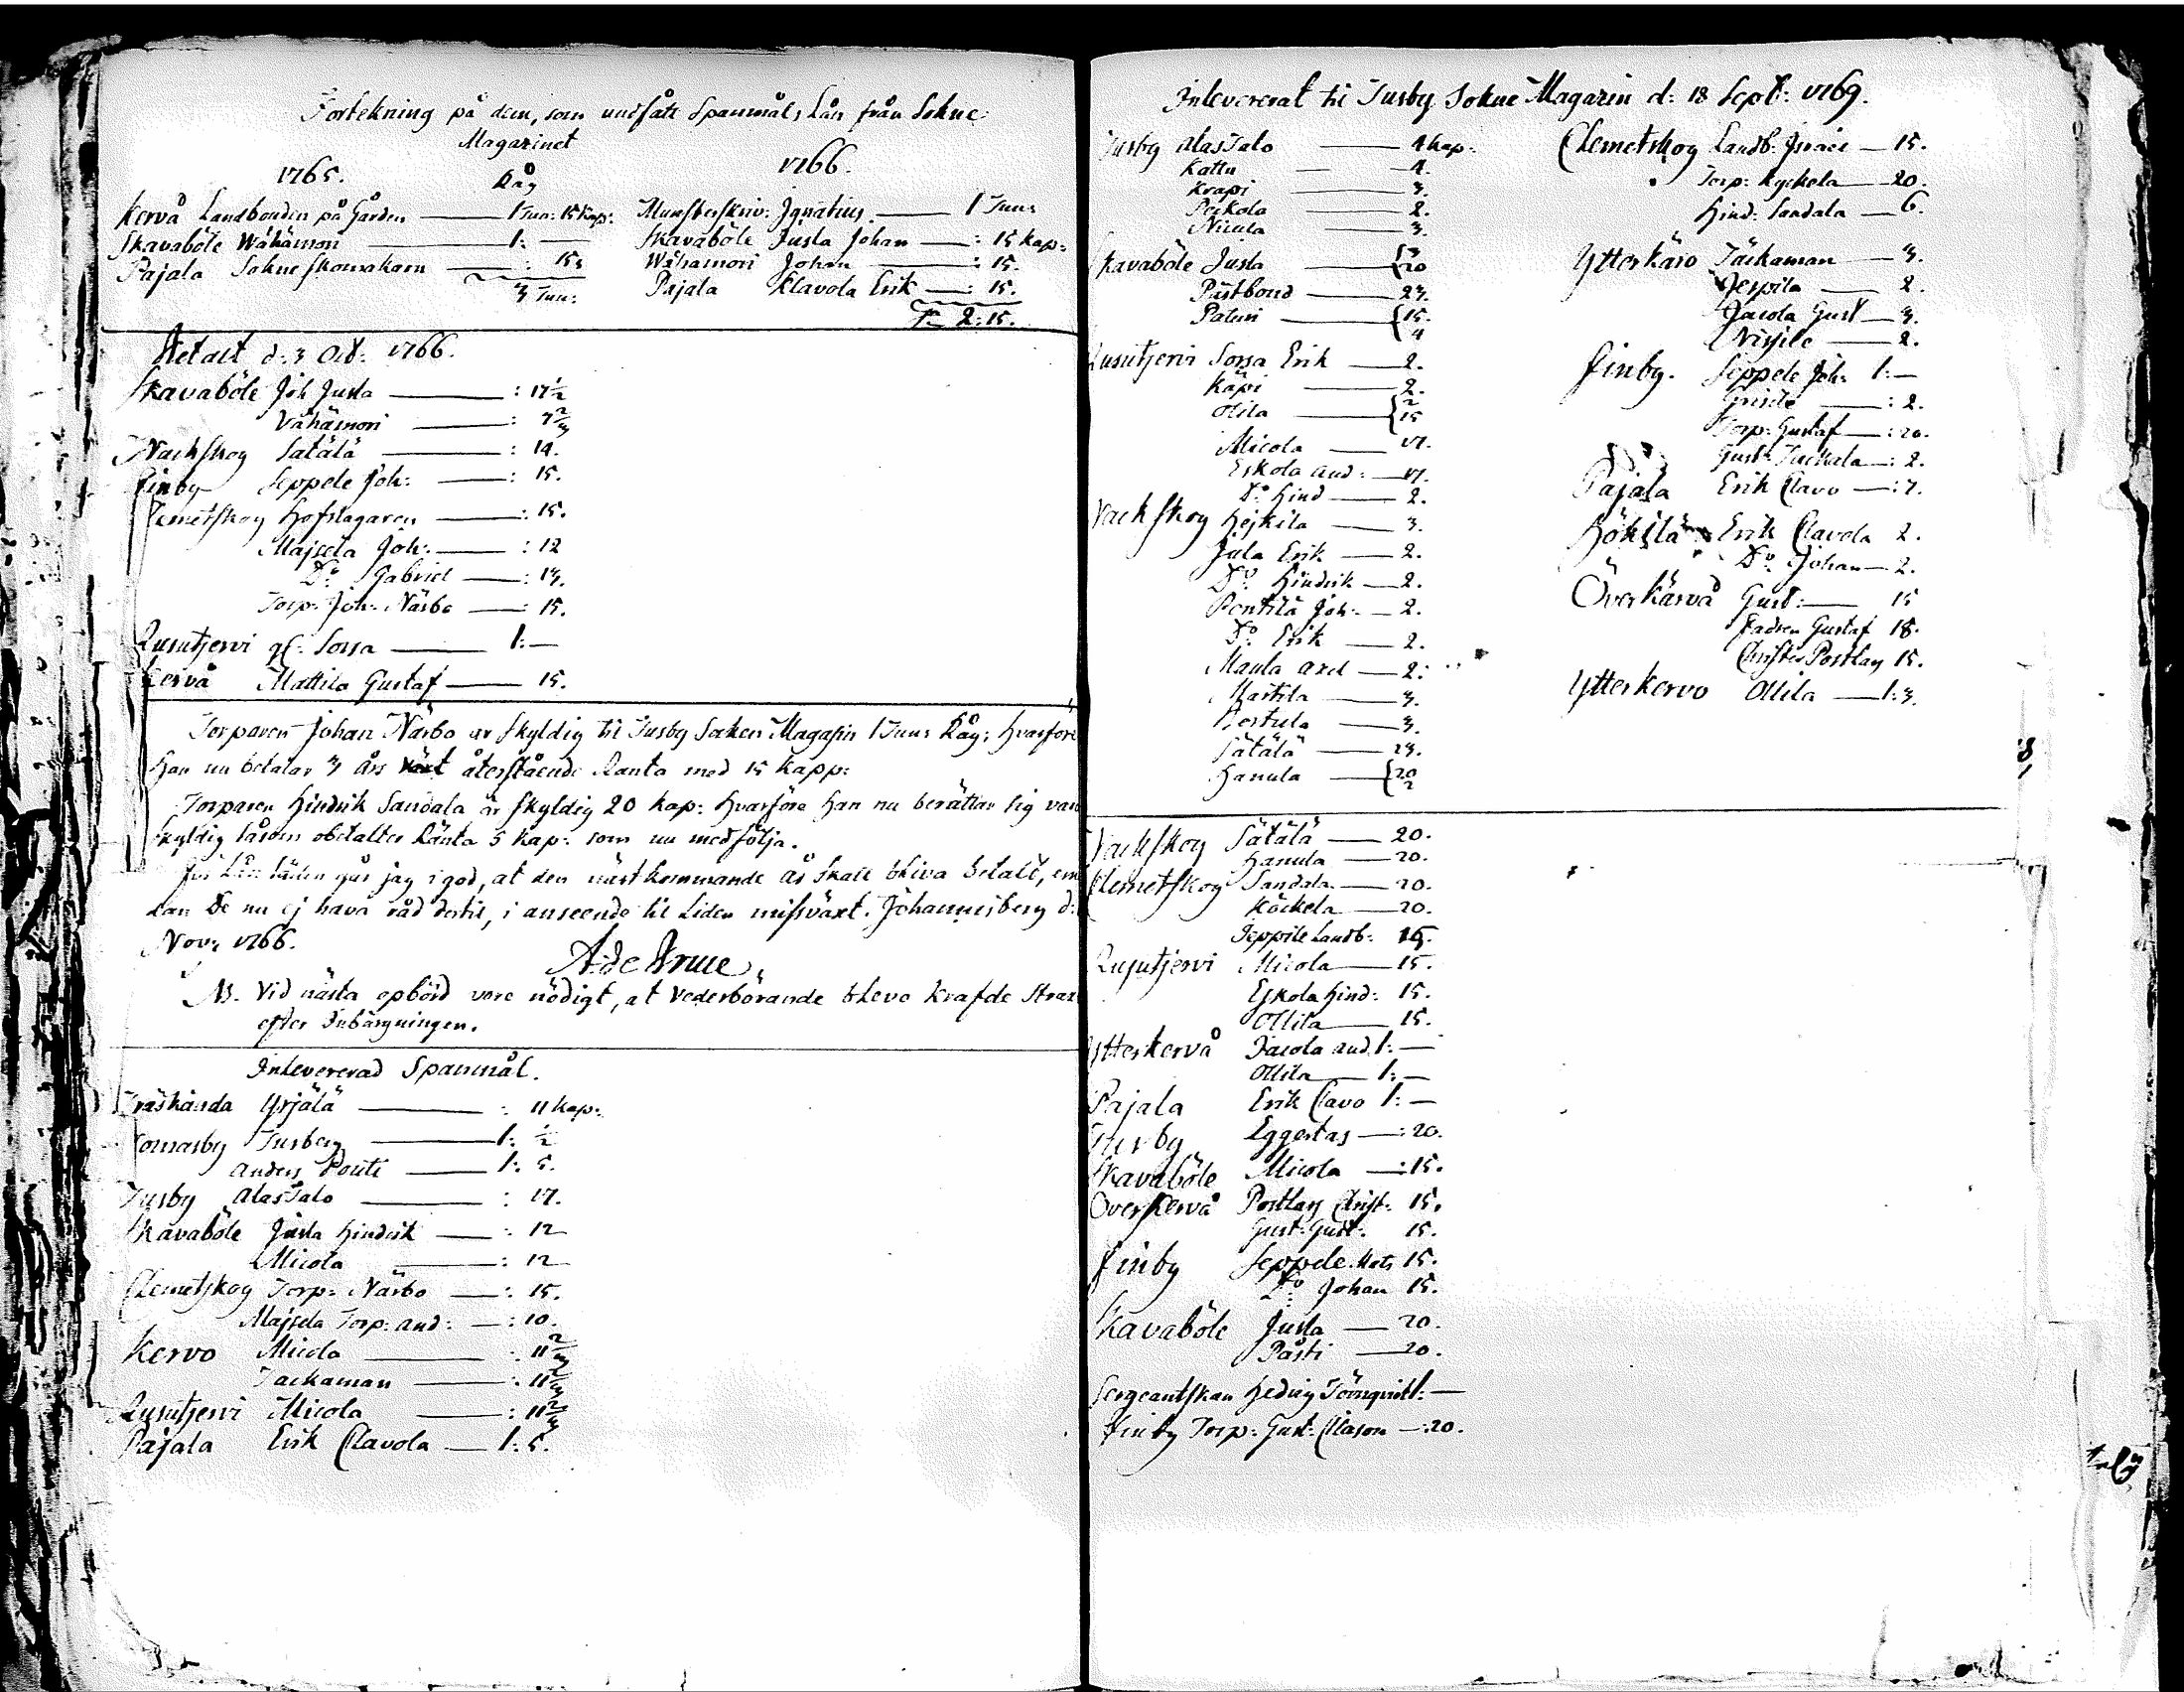 Förtekning på dem, som undfått Spanmåls Lån från Sokne
Magazinet
1765. Råg
Kervå Landbonden på Gården — 1 Tun: 15 Kap:
Skavaböle Wähämori — 1: —
Pajala Sokne Skomakarn — : 15
3 Tun:
1766.
Munsterskriv: Ignatius — 1 Tun:
Skavaböle Jusla Johan — : 15 kap:
Wähämori Johan — : 15.
Pajala Klavola Erik — : 15.
2: 15.
d: 3 Oct: 1766.
Skavaböle Joh Jusla — : 17 1/2
Vähämori — : 7 2/3
Nackskog Sätälä — : 14.
Finby Seppele Joh: — : 15.
Clemetskog Hofslagaren — : 15.
Majsela Joh: — : 12
Do Gabriel — : 13.
Torp: Joh: Närbo — : 15.
Rusutjervi gl: Sorsa — 1: —
Kervå Mattila Gustaf — 15.
Torparen Johan Närbo är skyldig til Tusby Socken Magasin 1 Tun: Råg; hvarföre
Han nu betalar 3 års återstående Ränta med 15 Kapp:
Torparen Hindrik Sandala är skyldig 20 kap: hvarföre han nu berättar sig vara
skyldig såsom obetalter Ränta 5 Kap: som nu medfölja.
går jag i god, at den nästkommande år skall bliva betalt,
kan De nu ej hava råd dertil, i anseende til Liden missväxt. Johannisberg d:
Nov: 1766.
A: de Brune
NB. Vid nästa opbörd vore nödigt, at Vederbörande bleve krafde Strax
efter Inbärgningen.
Inlevererad Spanmål.
Träskända Yrjälä — : 11 kap:
Tomasby Tusberg — 1: 1/2
Anders Pouti — 1: 5.
Tusby Alastalo — : 17.
Skavaböle Jusla Hindrik — : 12
Micola — : 12
Clemetskog Torp: Närbo — : 15.
Majsela Torp: And: — : 10.
Kervo Micola — : 11 2/3
Jackaman — : 11 2/3
Rusutjervi Micola — : 11 2/3
Pajala Erik Clavola — 1: 5.
Inlevererat til Tusby Sokne Magazin d: 18 Sept: 1769.
Tusby Alastalo — 4 kap:
Kattu — 4.
Krapi — 3.
Peckola — 2.
Nicula — 3.
Skavaböle Jusla — 3 20
Påstbond — 23.
Paturi — 15. 4
Rusutjervi Sorsa Erik — 2.
Käpi — 2.
Olila — 2 15
Micola — 17.
Eskola And: — 17.
Do Hind — 2.
Nackskog Hejkila — 3.
Jula Erik — 2.
Do Hindrik — 2.
Pentilä Joh: — 2.
Do: Erik — 2.
Maula Axel — 2:
Martila — 3.
— 3.
Sätälä — 23.
Hanula — 20 2
Clemetskog Landb: — 15.
Torp: Kyckela — 20.
Hind: Sandala — 6.
Ytterkäro Jäckaman — 3.
Jerpila — 2.
Jacola Gust — 3.
— 2.
Finby. Seppele Joh: 1: —
— : 2.
Torp: Gustaf — : 20.
Gust: — : 2.
Pajala Erik Clavo — : 7.
Hökilä Erik Clavola 2.
Do: Johan — 2.
Överkärvå Gust: — 15
Gustaf 18.
Christer Postlag 15.
Ytterkervo Ollila — 1: 3.
Nackskog Sätälä — 20.
Hanula — 20.
Clemetskog Sandala — 20.
Köckela — 20.
Jeppile Landb: 15.
Rusutjervi Micola — 15.
Eskola Hind: 15.
Ollila — 15.
Ytterkervå Jacola And. 1: —
Ollila — 1: —
Pajala Erik Clavo 1: —
Tusby Eggertas — : 20.
Skavaböle Micola — : 15.
Overkervå Postlag Christ: 15.
Gust: Gust: 15.
Finby Seppele Mats 15.
Do Johan 15.
Skavaböle Jusla — 20.
Påsti — 20.
Sergeantskan Hedvig Törnqvist 1: —
Finby Torp: Gust: Clason — : 20.